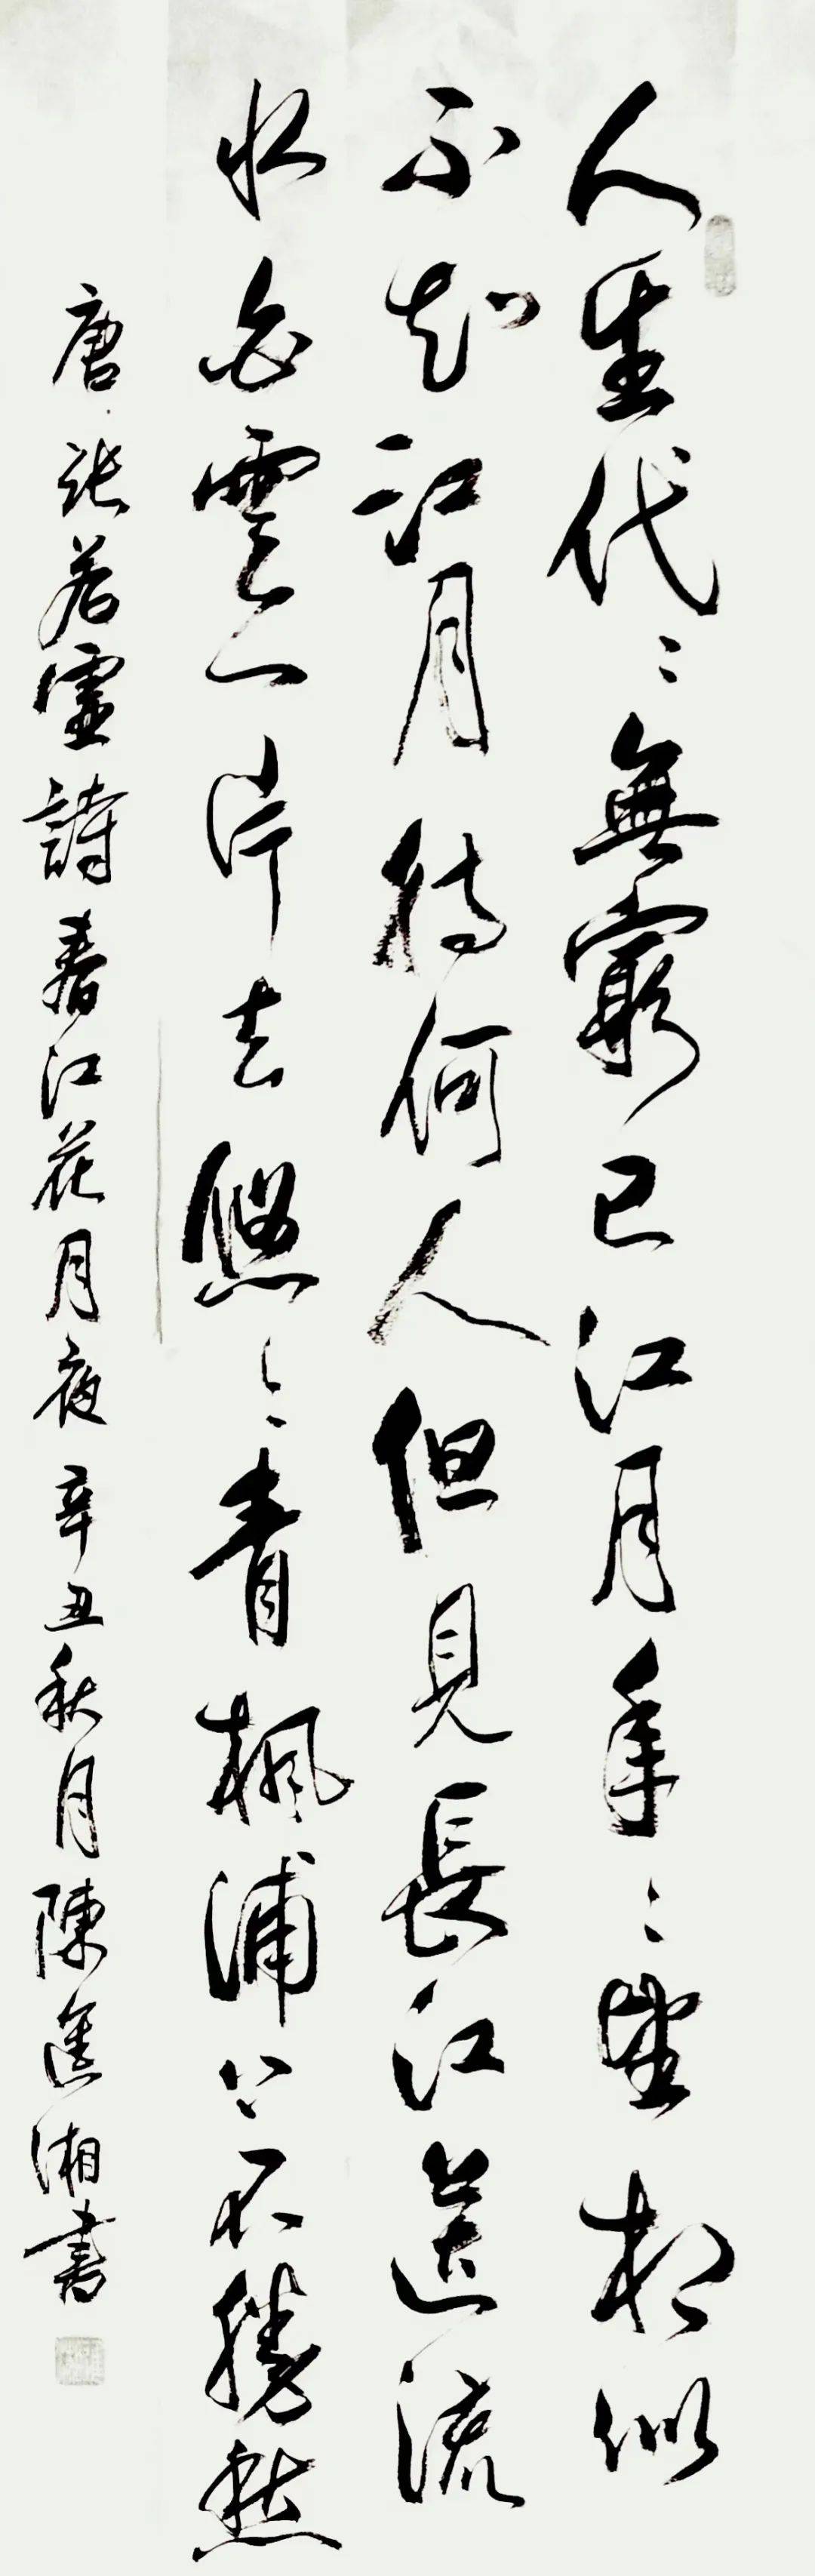 人生代々無窮已江月年々望相似
不知江月待何人但見長江送流
水白雲一片去悠々青楓浦上不勝愁
唐張若虛詩春江花月夜辛丑秋月陳進湘書